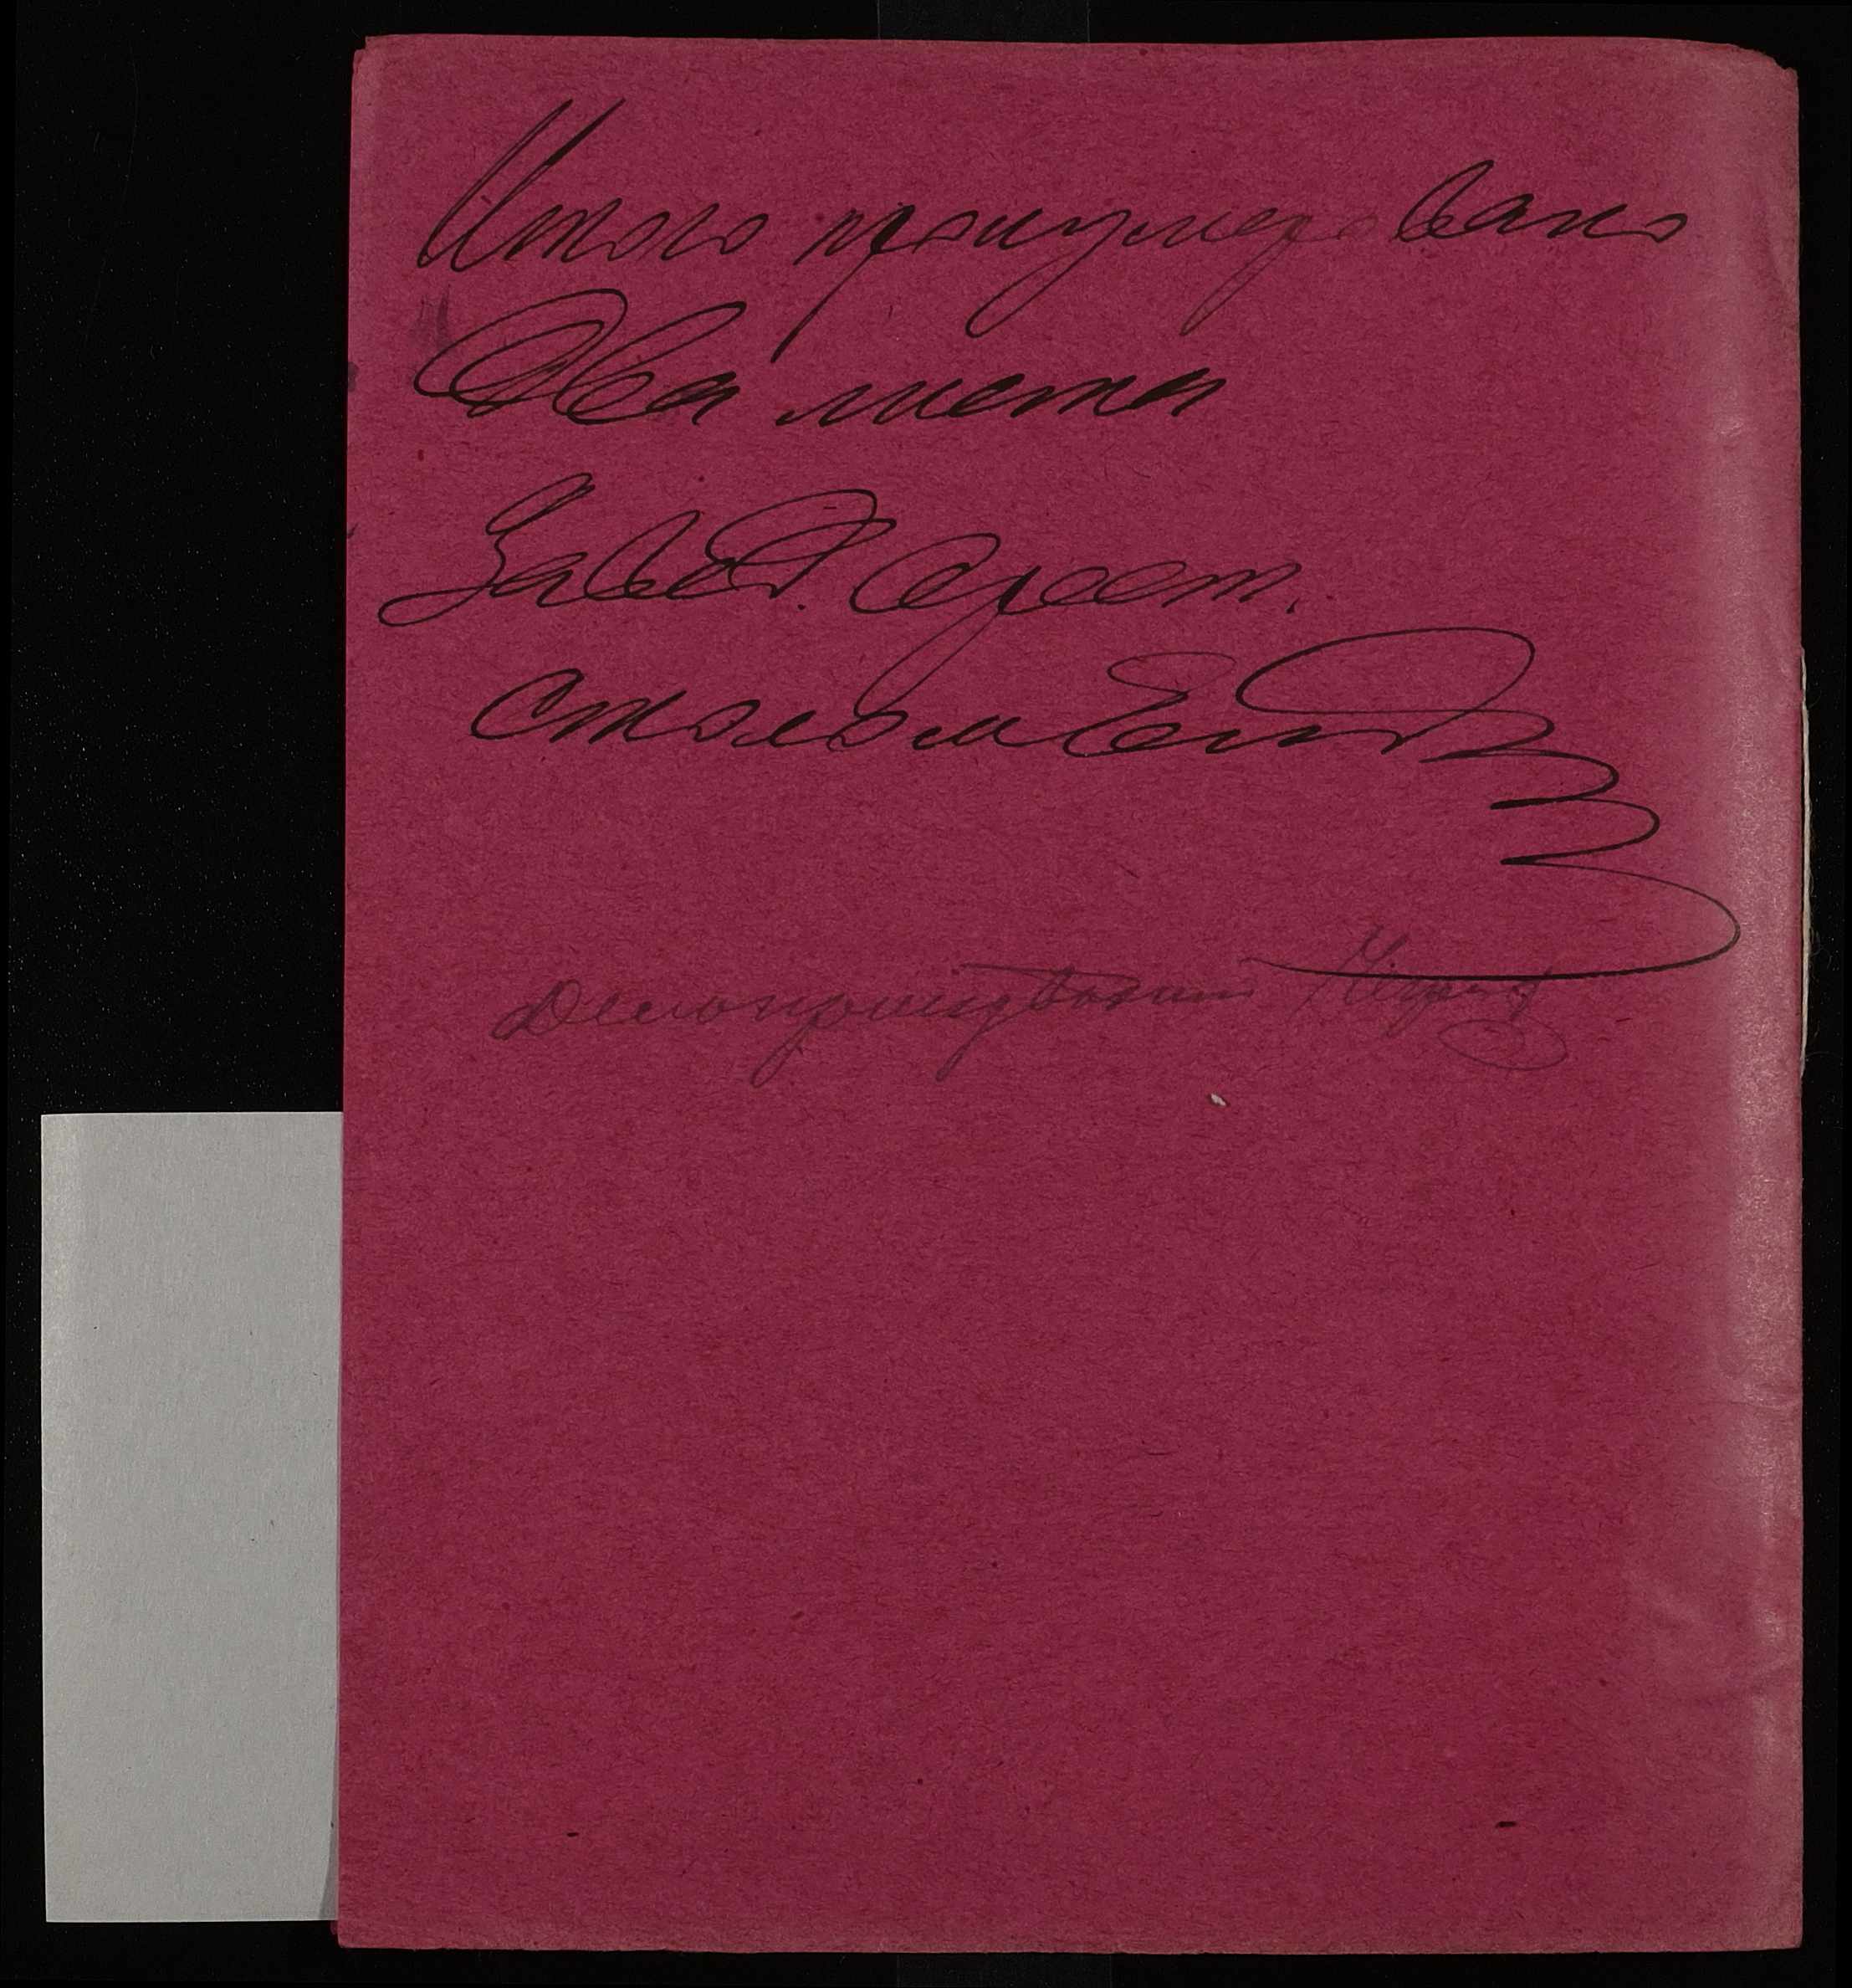 Итого пронумеровано
Два листа
Завед. Арест.
столом
Делопроизводитель